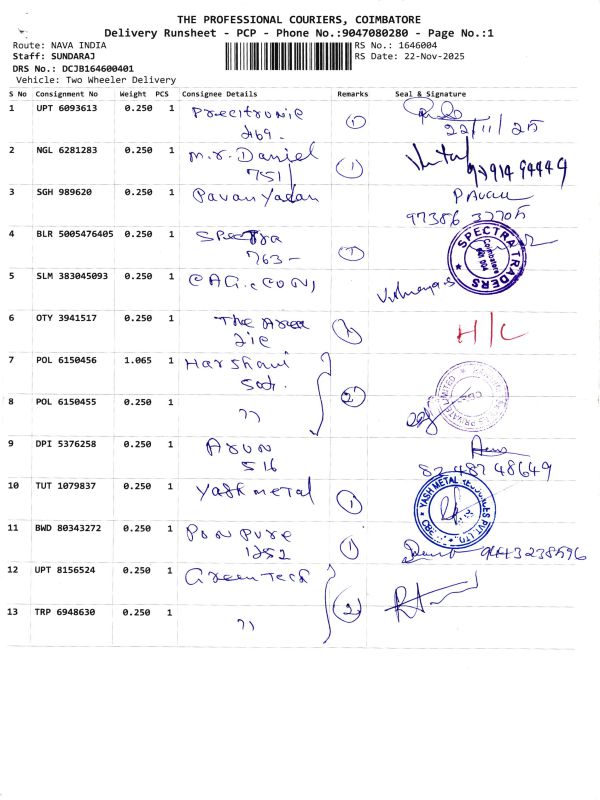 THE PROFESSIONAL COURIERS, COIMBATORE
Delivery Runsheet - PCP - Phone No.:9047080280 - Page No.:1
Route: NAVA INDIA RS No.: 1646004
Staff: SUNDARAJ RS Date: 22-Nov-2025
DRS No.: DCJB164600401
Vehicle: Two Wheeler Delivery
S No Consignment No Weight PCS Consignee Details Remarks Seal & Signature
1 UPT 6093613 0.250 1 Precitronic 1
469. 22/11/25
2 NGL 6281283 0.250 1 M.r. Daniel 1
751
3 SGH 989620 0.250 1 Pavan Yadan Pavan
97386 37705
4 BLR 5005476405 0.250 1 Spectra 1 SPECTRA TRADERS Coimbatore
763-
5 SLM 383045093 0.250 1
6 OTY 3941517 0.250 1 The Area 1 H/C
212
7 POL 6150456 1.065 1 Harshani 2
8 POL 6150455 0.250 1 "
9 DPI 5376258 0.250 1 Arun
516 82487 48649
10 TUT 1079837 0.250 1 Yash metal 1 YASH METAL PVT LTD
11 BWD 80343272 0.250 1 Pon Pure 1
1252 9443238596
12 UPT 8156524 0.250 1 Green Tech 2
13 TRP 6948630 0.250 1 "